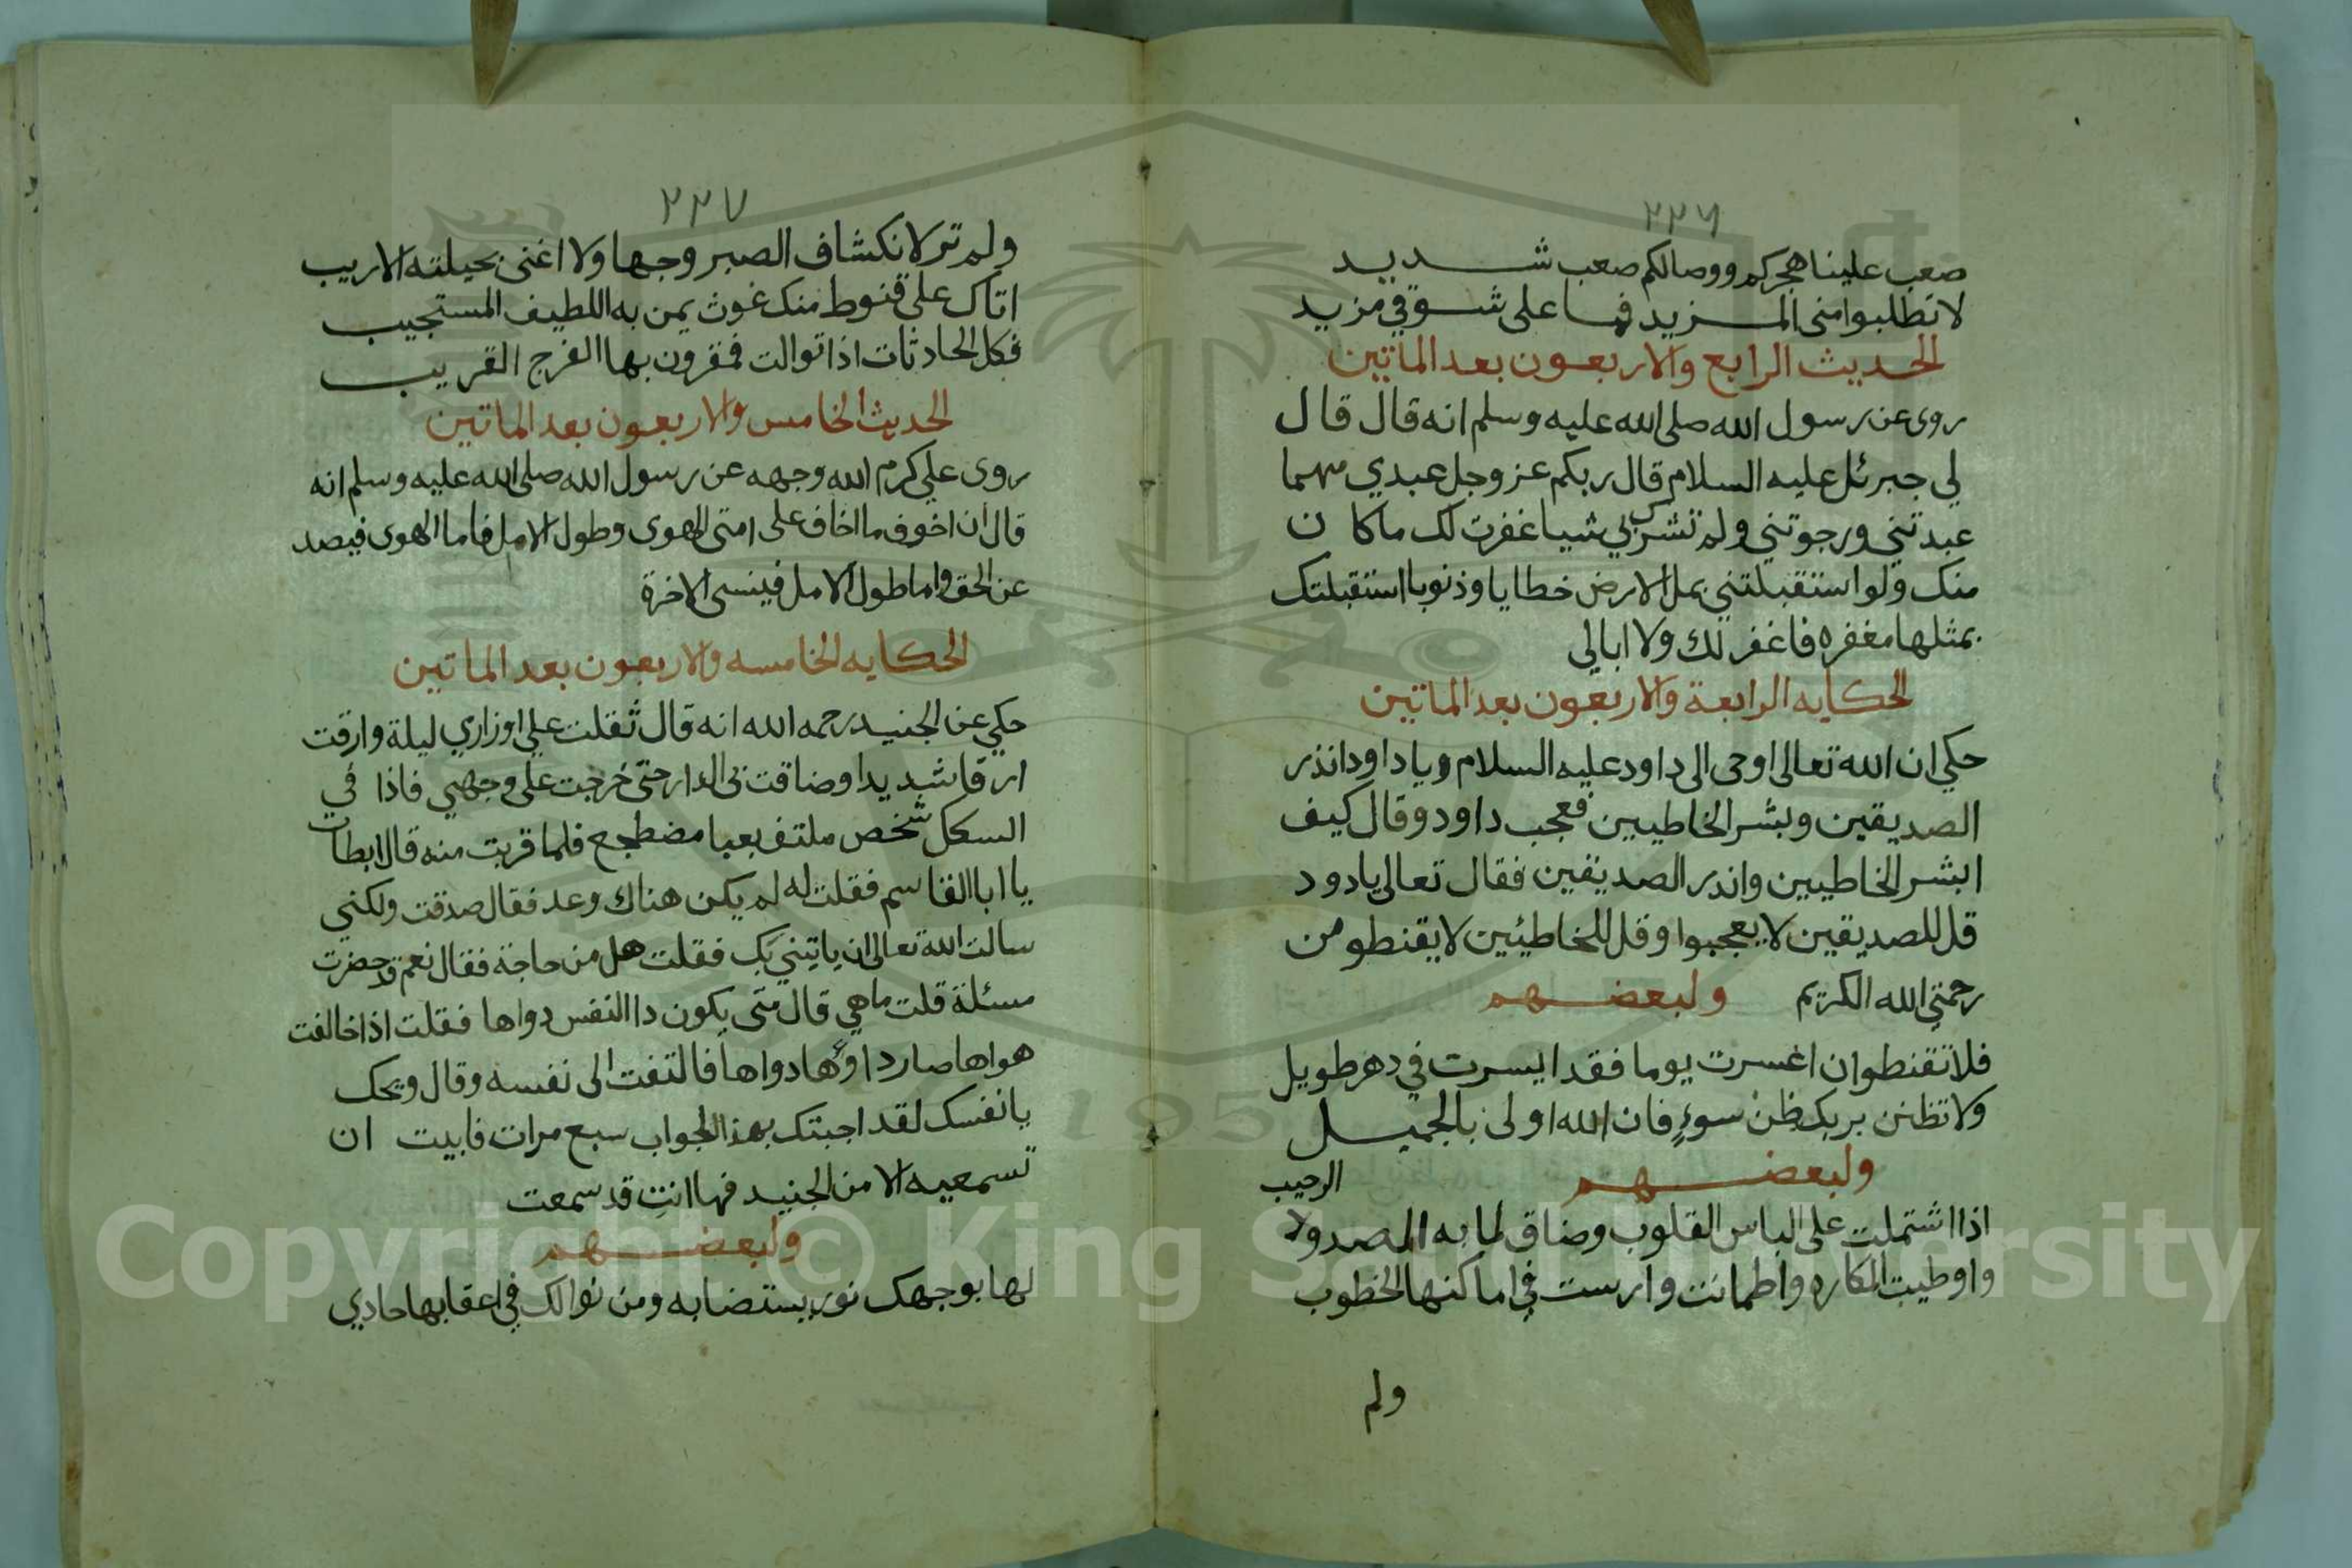 ٢٢٦
صعب علينا هجركم ووصالكم صعب شديد
لا تطلبوا منى المزيد فما على شوقي مزيد
الحديث الرابع والاربعون بعد الماتين
روى عن رسول الله صلى الله عليه وسلم انه قال قال
لي جبرئل عليه السلام قال ربكم عز وجل عبدي مهما
عبدتني ورجوتني ولم تشرك بي شيا غفرت لك ما كان
منك ولو استقبلتني بمل الارض خطايا وذنوبا استقبلتك
بمثلها مغفره فاغفر لك ولا ابالي
الحكايه الرابعة والاربعون بعد الماتين
حكي ان الله تعالى اوحى الى داود عليه السلام ويا داود انذر
الصديقين وبشر الخاطيين فعجب داود وقال كيف
ابشر الخاطيين واندر الصديقين فقال تعالى يا دود
قل للصديقين لا يعجبوا وقل للخاطئين لا يقنطو من
رحمتي الله الكريم ولبعضهم
فلا تقنطوان اعسرت يوما فقد ايسرت في دهر طويل
ولا تظنن بربك ظن سوءٍ فان الله اولى بالجميل
ولبعضهم
الرحيب
اذا اشتملت على الياس القلوب وضاق لما به الصدولا
واوطيت المكاره واطمانت وارست في اماكنها الخطوب
ولم
٢٢٧
ولم تر لانكشاف الصبر وجها ولا اغنى بحيلته الاريب
اتاك على قنوط منك غوث يمن به اللطيف المستجيب
فكل الحادثات اذا توالت فمقرون بها الفرج القريب
الحديث الخامس والاربعون بعد الماتين
روى علي كرم الله وجهه عن رسول الله صلى الله عليه وسلم انه
قال ان اخوف ما اخاف على امتى الهوى وطول الامل فاما الهوى فيصد
عن الحق واما طول الامل فينسى الاخرة
الحكايه الخامسه والاربعون بعد الماتين
حكي عن الجنيد رحمه الله انه قال ثقلت علي اوزاري ليلة وارقت
ارقا شديدا وضاقت بى الدار حتى خرجت على وجهي فاذا في
السكك شخص ملتف بعبا مضطجع فلما قربت منه قال ابطات
يا ابا القاسم فقلت له لم يكن هناك وعد فقال صدقت ولكني
سالت الله تعالى ان ياتيني بك فقلت هل من حاجة فقال نعم قد حضرت
مسئلة قلت ما هي قال متى يكون دا النفس دواها فقلت اذا خالفت
هواها صار داؤها دواها فالتفت الى نفسه وقال ويحك
يا نفسك لقد اجبتك بهذا الجواب سبع مرات فابيت ان
تسمعيه الا من الجنيد فها انتِ قد سمعت
ولبعضهم
لها بوجهك نور يستضا به ومن نوالك في اعقابها حادي